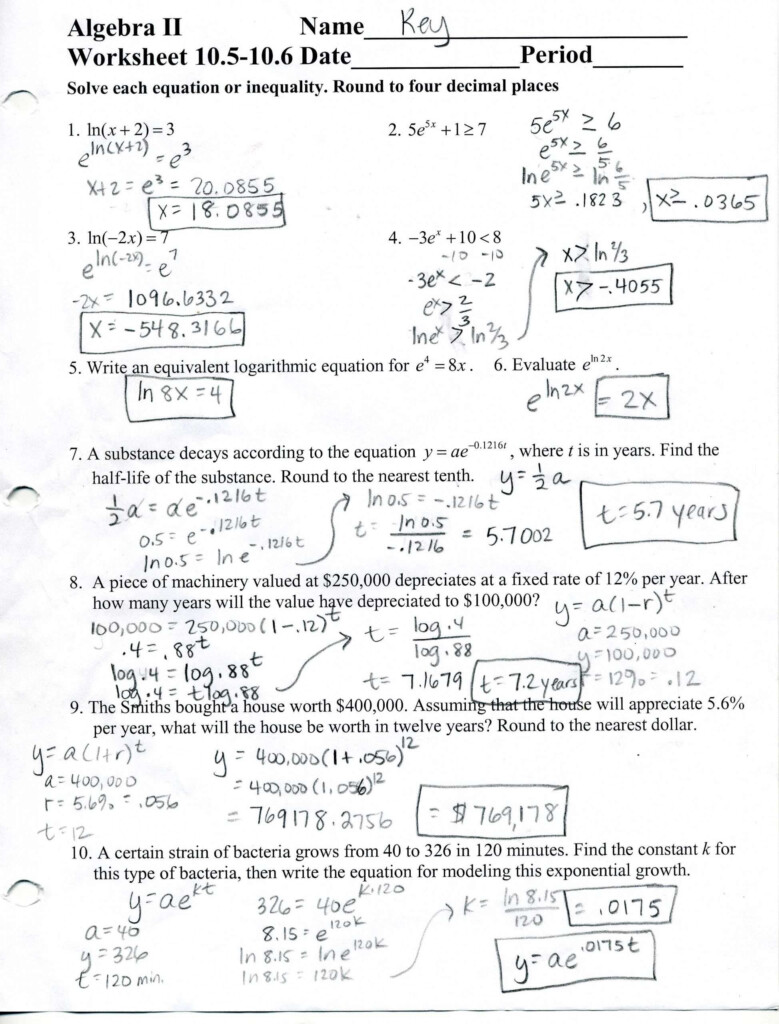 Algebra II Name Key
Worksheet 10.5-10.6 Date Period
Solve each equation or inequality. Round to four decimal places
1. ln(x + 2) = 3
e^ln(x+2) = e^3
x+2 = e^3 = 20.0855
x = 18.0855
2. 5e^5x + 1 ≥ 7
5e^5x ≥ 6
e^5x ≥ 6/5
ln e^5x ≥ ln 6/5
5x ≥ .1823, x ≥ .0365
3. ln(−2x) = 7
e^ln(-2x) = e^7
-2x = 1096.6332
x = -548.3166
4. −3e^x + 10 < 8
-10 -10
-3e^x < -2
e^x > 2/3
ln e^x > ln 2/3
x > ln 2/3
x > -.4055
5. Write an equivalent logarithmic equation for e^4 = 8x.
ln 8x = 4
6. Evaluate e^ln 2x.
e^ln2x = 2x
7. A substance decays according to the equation y = ae^−0.1216t, where t is in years. Find the
half-life of the substance. Round to the nearest tenth. y = 1/2 a
1/2 a = ae^-.1216t
0.5 = e^-.1216t
ln 0.5 = ln e^-.1216t
ln 0.5 = -.1216t
t = ln 0.5 / -.1216 = 5.7002
t = 5.7 years
8. A piece of machinery valued at $250,000 depreciates at a fixed rate of 12% per year. After
how many years will the value have depreciated to $100,000? y = a(1-r)^t
100,000 = 250,000(1-.12)^t
.4 = .88^t
log .4 = log .88^t
log .4 = t log .88
t = log .4 / log .88
t = 7.1679 t = 7.2 years
a = 250,000
y = 100,000
r = 12% = .12
9. The Smiths bought a house worth $400,000. Assuming that the house will appreciate 5.6%
per year, what will the house be worth in twelve years? Round to the nearest dollar.
y = a(1+r)^t
a = 400,000
r = 5.6% = .056
t = 12
y = 400,000(1+.056)^12
= 400,000(1.056)^12
= 769178.2756 = $769,178
10. A certain strain of bacteria grows from 40 to 326 in 120 minutes. Find the constant k for
this type of bacteria, then write the equation for modeling this exponential growth.
y = ae^kt
a = 40
y = 326
t = 120 min.
326 = 40e^k·120
8.15 = e^120k
ln 8.15 = ln e^120k
ln 8.15 = 120k
k = ln 8.15 / 120 = .0175
y = ae^.0175t